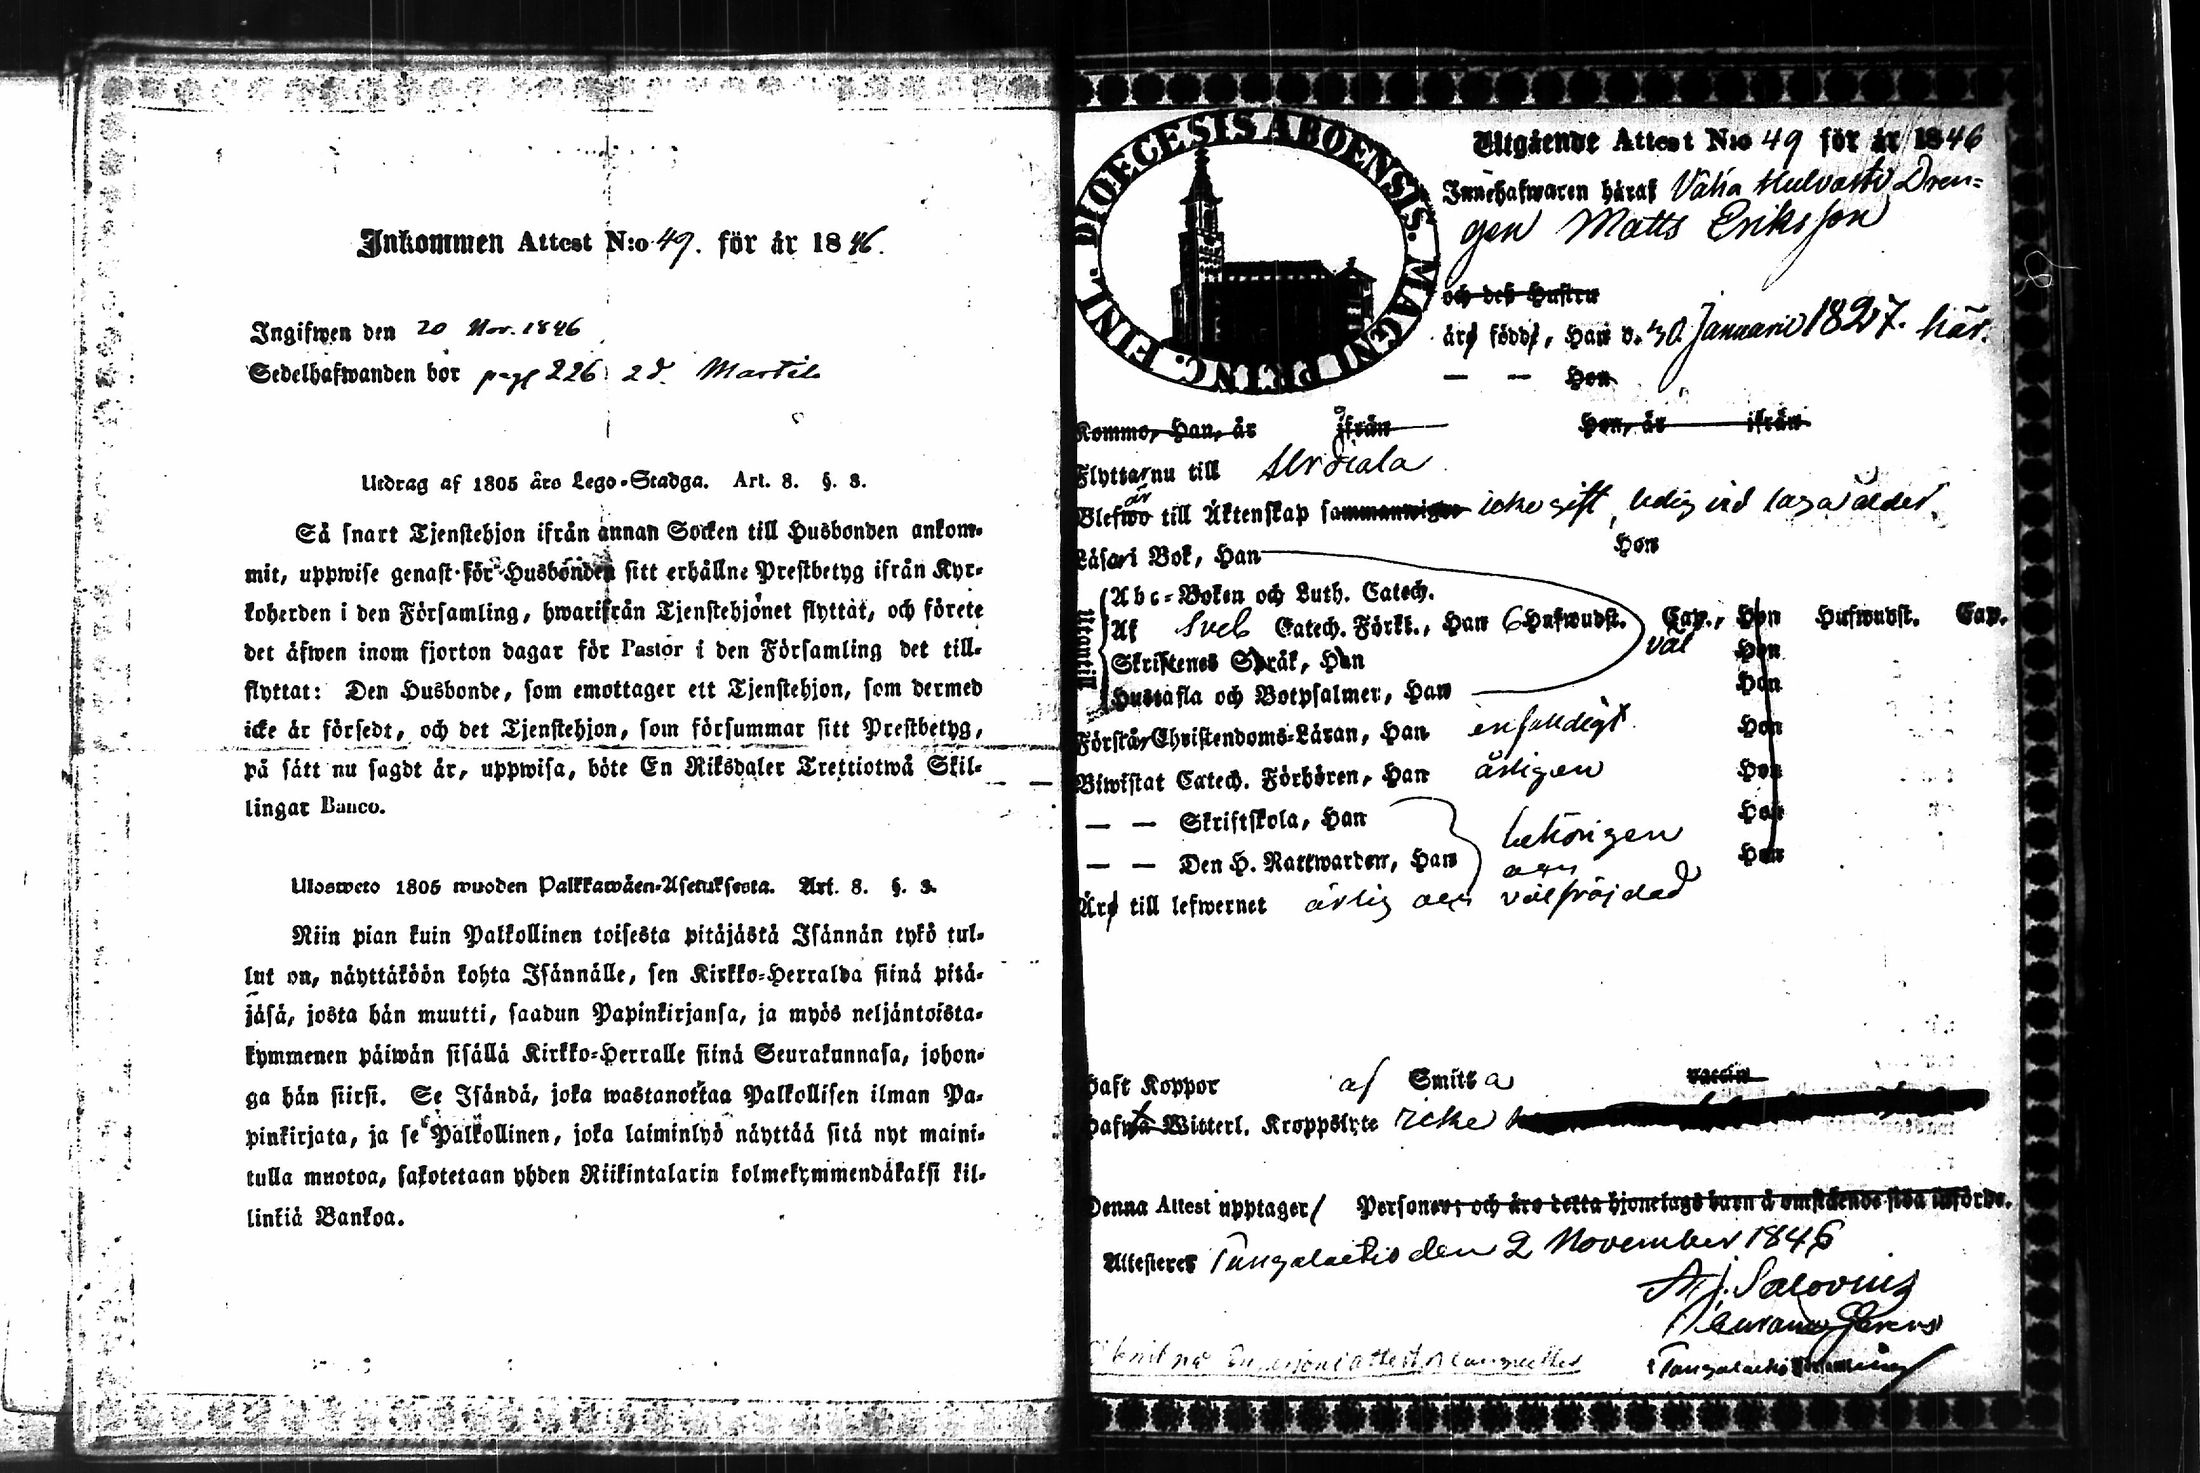 Inkommen Attest N:o 49. för år 1846.
Ingifwen den 20 Nov. 1846
Sedelhafwanden bor pag 226 2d. Martila
Utdrag af 1805 års Lego-Stadga. Art. 8. §. 3.
Så snart Tjenstehjon ifrån annan Socken till Husbonden ankom-
mit, uppwise genast för Husbonden sitt erhållne Prestbetyg ifrån Kyr-
koherden i den Församling, hwarifrån Tjenstehjonet flyttat, och förete
det äfwen inom fjorton dagar för Pastor i den Församling det till-
flyttat: Den Husbonde, som emottager ett Tjenstehjon, som dermed
icke är försedt, och det Tjenstehjon, som försummar sitt Prestbetyg,
på sätt nu sagdt är, uppwisa, böte En Riksdaler Trettiotwå Skil-
lingar Banco.
Ulosweto 1805 wuoden Palkkawäen-Asetuksesta. Art. 8. §. 3.
Niin pian kuin Palkollinen toisesta pitäjästä Isännän tykö tul-
lut on, näyttäköön kohta Isännälle, sen Kirkko-Herralda siinä pitä-
jäsä, josta hän muutti, saadun Papinkirjansa, ja myös neljäntoista-
kymmenen päiwän sisällä Kirkko-Herralle siinä Seurakunnasa, johon-
ga hän siirsi. Se Isändä, joka wastanottaa Palkollisen ilman Pa-
pinkirjata, ja se Palkollinen, joka laiminlyö näyttää sitä nyt maini-
tulla muotoa, sakotetaan yhden Riikintalarin kolmekymmendäkaksi kil-
linkiä Bankoa.
DIOECESIS ABOENSIS. MAGNI PRINC. FINL.
Utgående Attest N:o 49 för år 1846
Innehafwaren häraf Vähä Hulvasto Dren-
gen Matts Eriksson
och deß Hustru
äro födde, Han d. 30 Januarii 1827. här.
— — Hon
Kommo, Han, år ifrån Hon, år ifrån
Flytta nu till Urdiala
är
Blefwo till Äktenskap sammanwigde icke gift, ledig vid laga ålder.
Läsa i Bok, Han Hon
Utantill
Abc-Boken och Luth. Catech.
Af Sveb Catech. Förkl., Han 6 Hufwudst. Cap., Hon Hufwudst. Cap.
väl
Skriftenes Språk, Han Hon
Hustafla och Botpsalmer, Han Hon
Förstår Christendoms-Läran, Han enfaldigt Hon
Biwistat Catech. Förhören, Han årligen Hon
— — Skriftskola, Han Hon
behörigen
— — Den H. Nattwarden, Han Hon
Äro till lefwernet ärlig och välfräjdad
Haft Koppor af Smitta vaccin
Hafwa Witterl. Kroppslyte icke
Denna Attest upptager 1 Personer; och äro detta hjonelags barn å omstående sida införde.
Attesteres Tungelaetio den 2 November 1846
Salovius